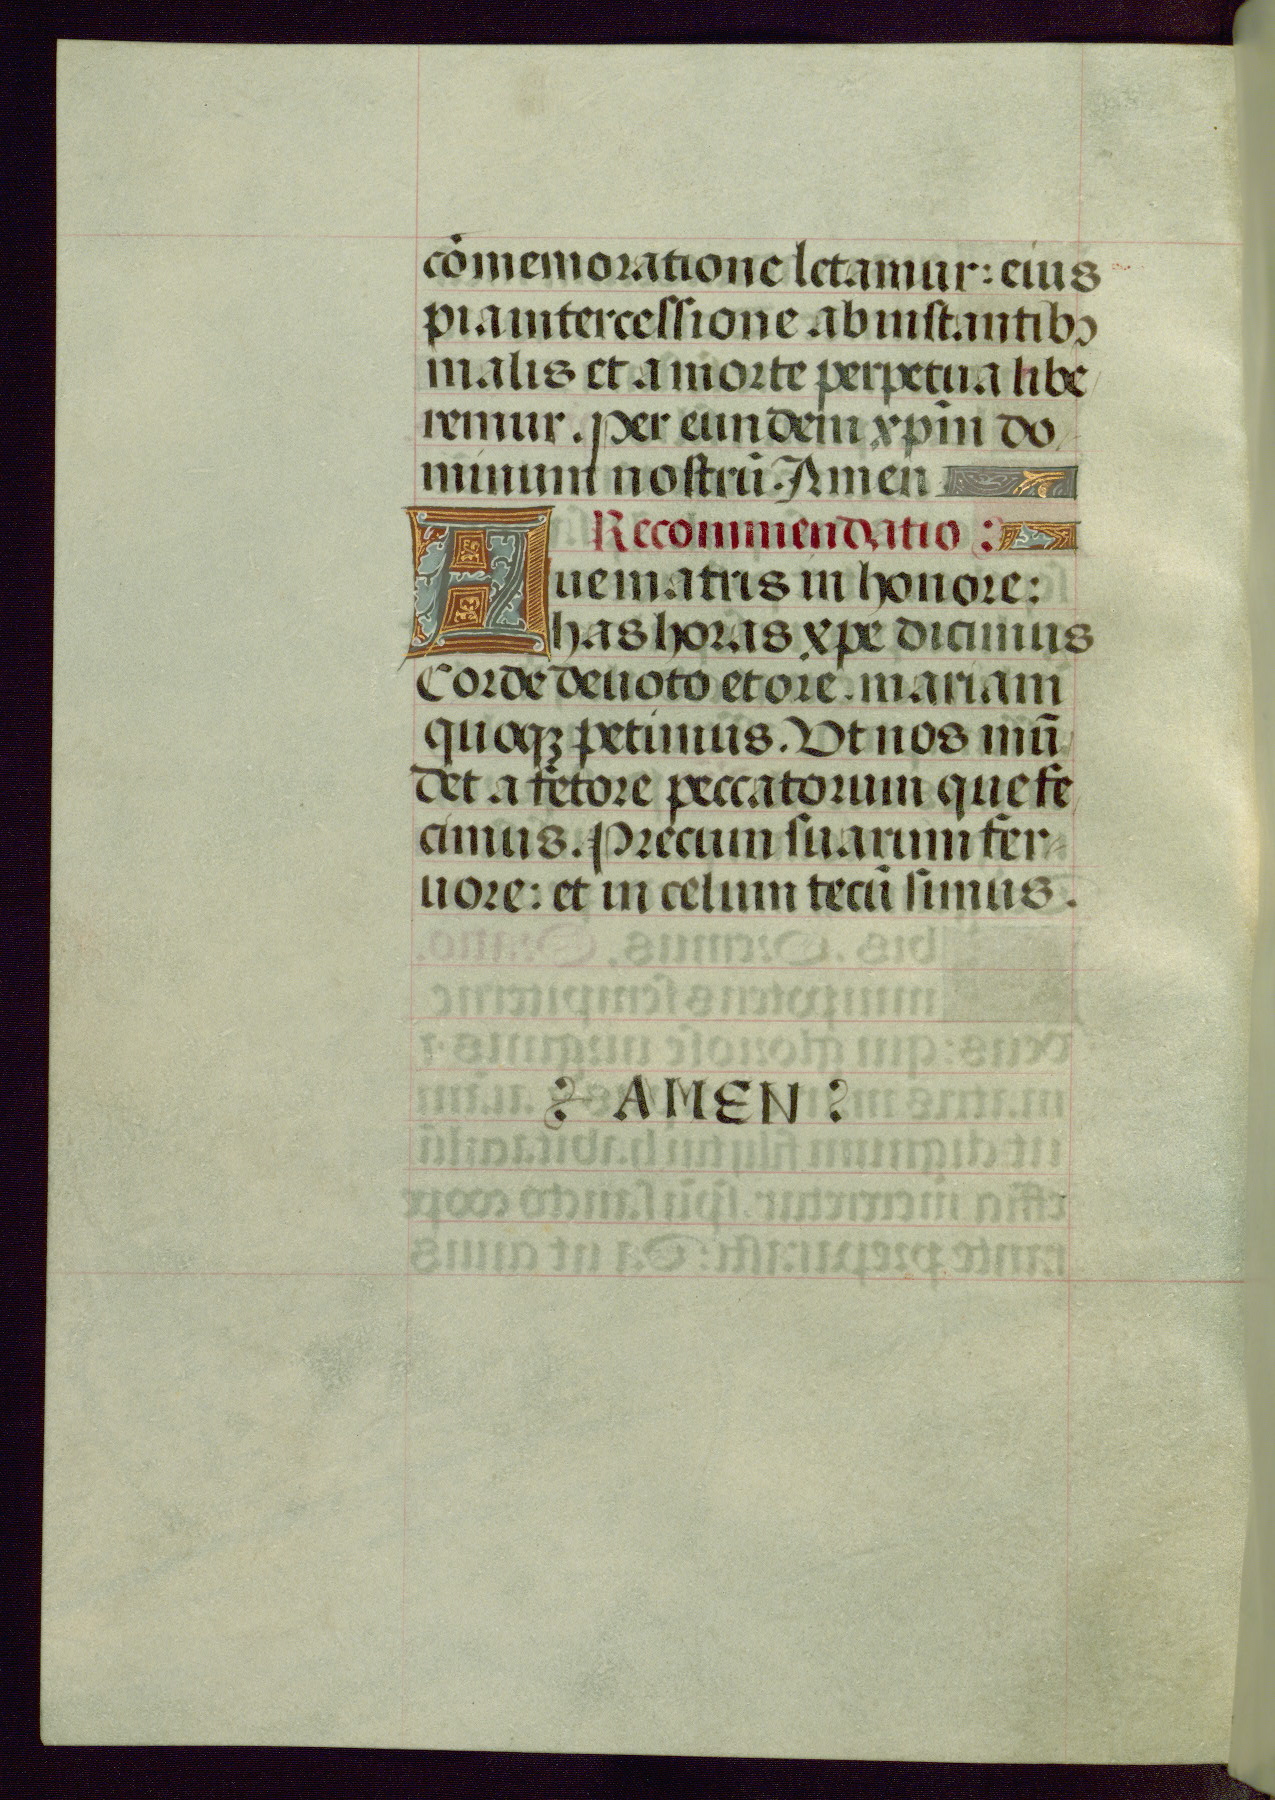 cōmemoratione letamur: eius
pia intercessione ab instantibꝰ
malis et a morte perpetua libe
remur. Per eundem xp̄m do
minum nostrū. Amen
Recommendatio:
Aue matris in honore:
has horas xpe dicimus
Corde deuoto et ore. mariam
quoqꝫ petimus. Vt nos mū
det a fetore peccatorum que fe
cimus. Precum suarum fer
uore: et in celum tecū simus.
AMEN